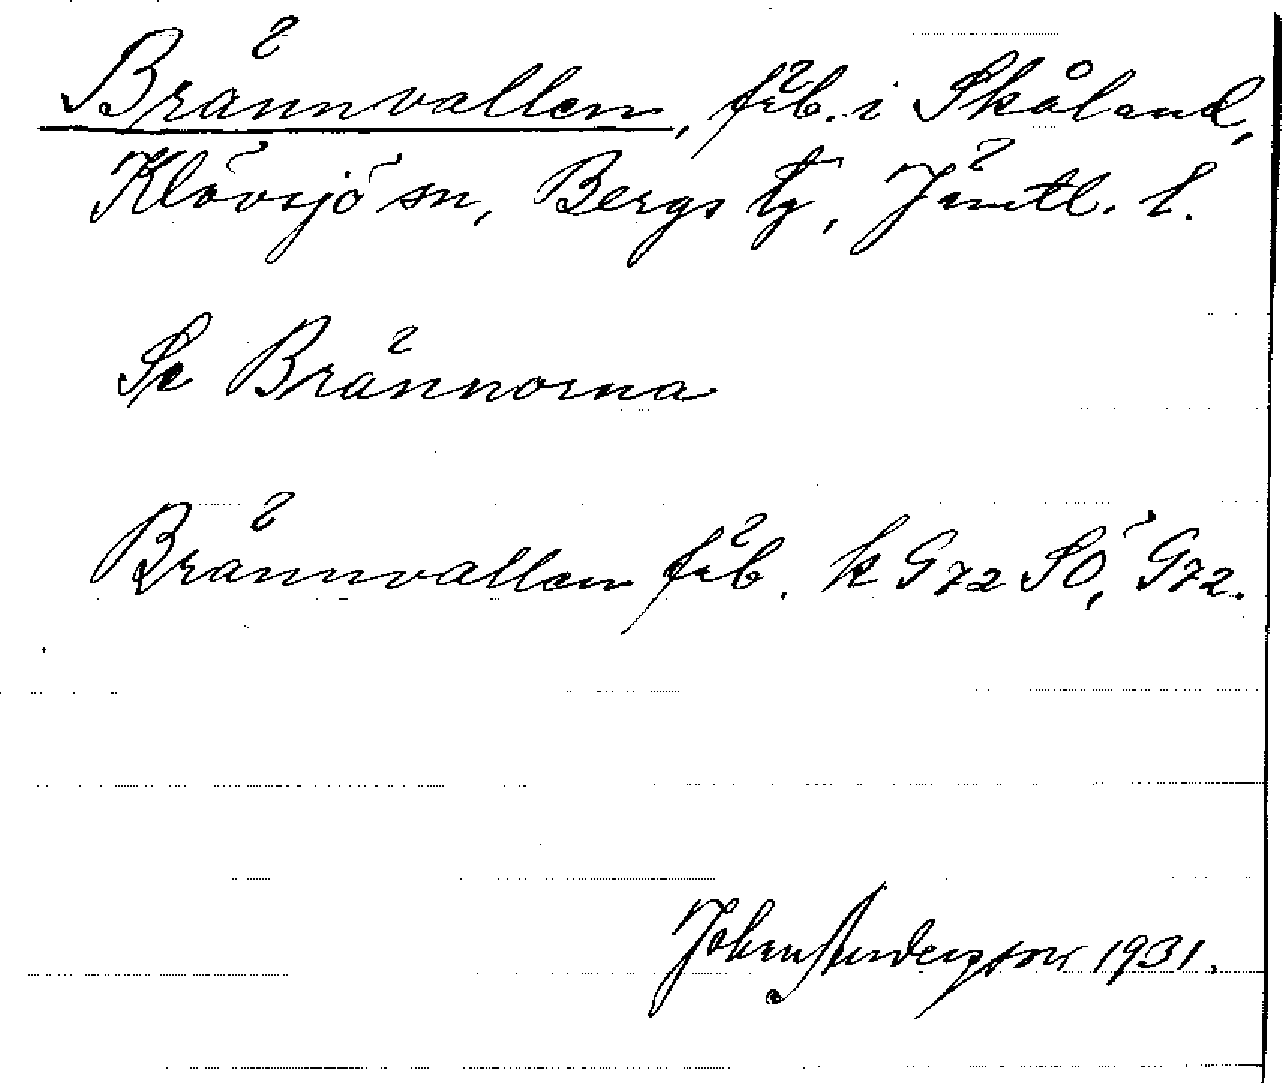 Brännvallen, fäb. i Skåland,
Klövsjö sn, Bergs tg, Jämtl. l.
Se Brännorna
Brännvallen fäb. k G72 SÖ, G72.
Johan Anderson 1931.